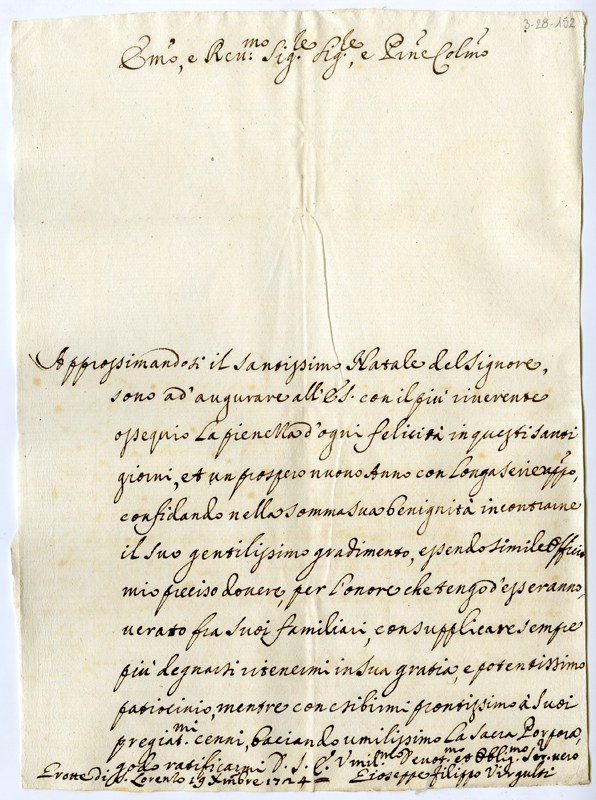 3-28-152
Emo, e Reu:mo Sig:re Sig:re, e Prne Colmo
Approssimandosi il Santissimo Natale del Signore,
sono ad' augurare all' E.S. con il più riuerente
ossequio La pienezza d'ogni felicità in questi Santi
giorni, et un prospero nuouo Anno con Longa serie
confidando nella somma sua benignità incontrarne
il suo gentilissimo gradimento, essendo simile Officio
mio preciso douere, per l'onore che tengo d'esser anno,
uerato fra suoi familiari, con supplicare sempre
più degnarsi ritenermi in sua gratia, e potentissimo
patrocinio, mentre con esibirmi prontissimo à suoi
pregiat:mi cenni, baciando umilissimo La Sacra Porpora,
godo ratificarmi D. S. E. Vmil:mo Deuot:mo et Obblig:mo Ser:uero
Grotte di S. Lorenzo 19 Xmbre 1724 Gioseppe filippo Virgulti